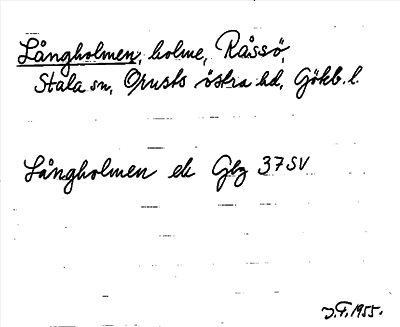 Långholmen, holme, Råssö,
Stala sn, Orusts östra hd, Gökb. l.
Långholmen ek Gbg 37 SV
J.F. 1955.